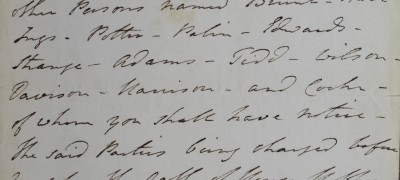 other Persons named Brunt - 
Ings - Potter - Palin - Edwards -
Strange - Adams - Tidd - Wilson -
Davison - Harrison - and Cooke -
of whom you shall have notice -
The said Parties being charged before